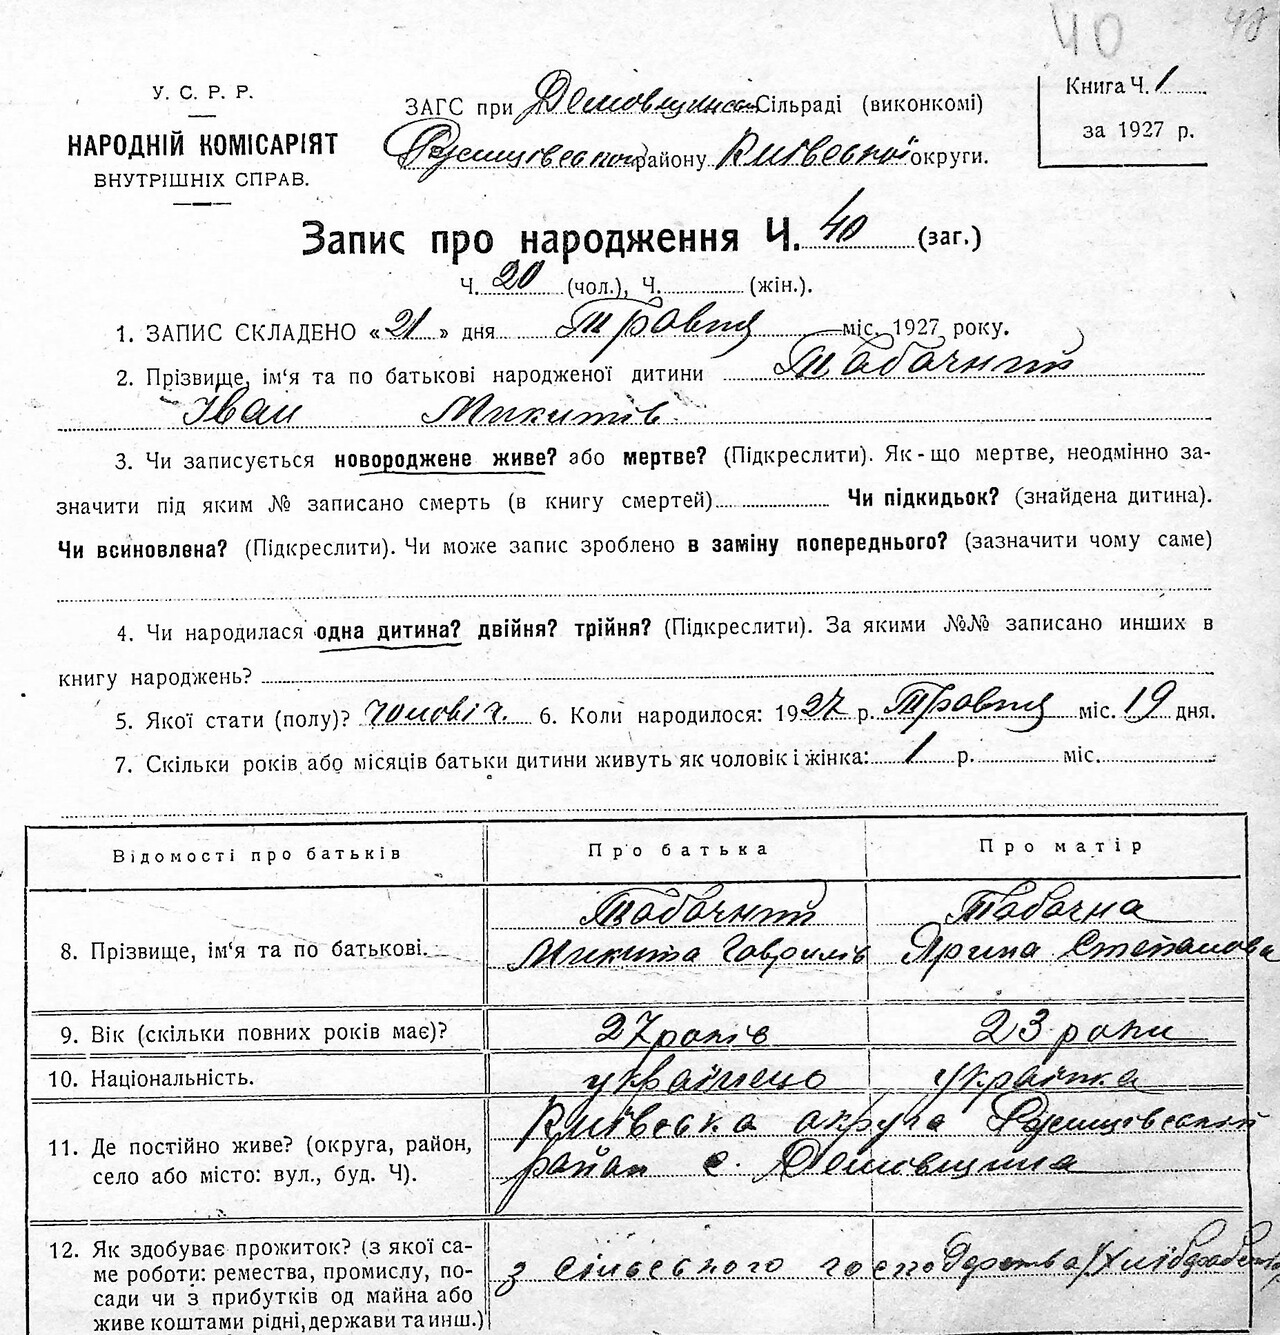 40
У. С. Р. Р.
НАРОДНІЙ КОМІСАРІЯТ
ВНУТРІШНІХ СПРАВ.
ЗАГС при Сільраді (виконкомі)
району Київської округи.
Книга Ч. 1
за 1927 р.
Запис про народження Ч. 40 (заг.)
Ч. 20 (чол.), Ч. (жін.).
1. ЗАПИС ЄКЛАДЕНО « 21 » дня Травня міс. 1927 року.
2. Прізвище, ім‘я та по батькові народженої дитини Табачний
Іван Микитів
3. Чи записується новороджене живе? або мертве? (Підкреслити). Як-що мертве, неодмінно за-
значити під яким № записано смерть (в книгу смертей) Чи підкидьок? (знайдена дитина).
Чи всиновлена? (Підкреслити). Чи може запис зроблено в заміну попереднього? (зазначити чому саме)
4. Чи народилася одна дитина? двійня? трійня? (Підкреслити). За якими №№ записано инших в
книгу народжень?
5. Якої стати (полу)? чоловіч. 6. Коли народилося: 1927 р. Травня міс. 19 дня.
7. Скільки років або місяців батьки дитини живуть як чоловік і жінка: 1 р. міс.
Відомості про батьків
Про батька
Про матір
8. Прізвище, ім‘я та по батькові.
Табачний
Микита Гаврилів
Табачна
Ярина Степанова
9. Вік (скільки повних років має)?
27 років
23 роки
10. Національність.
українець
українка
11. Де постійно живе? (округа, район,
село або місто: вул., буд. Ч).
Київська округа Ржищівський
район с.
12. Як здобуває прожиток? (з якої са-
ме роботи: ремества, промислу, по-
сади чи з прибутків од майна або
живе коштами рідні, держави та инш.)
з сільського господарства